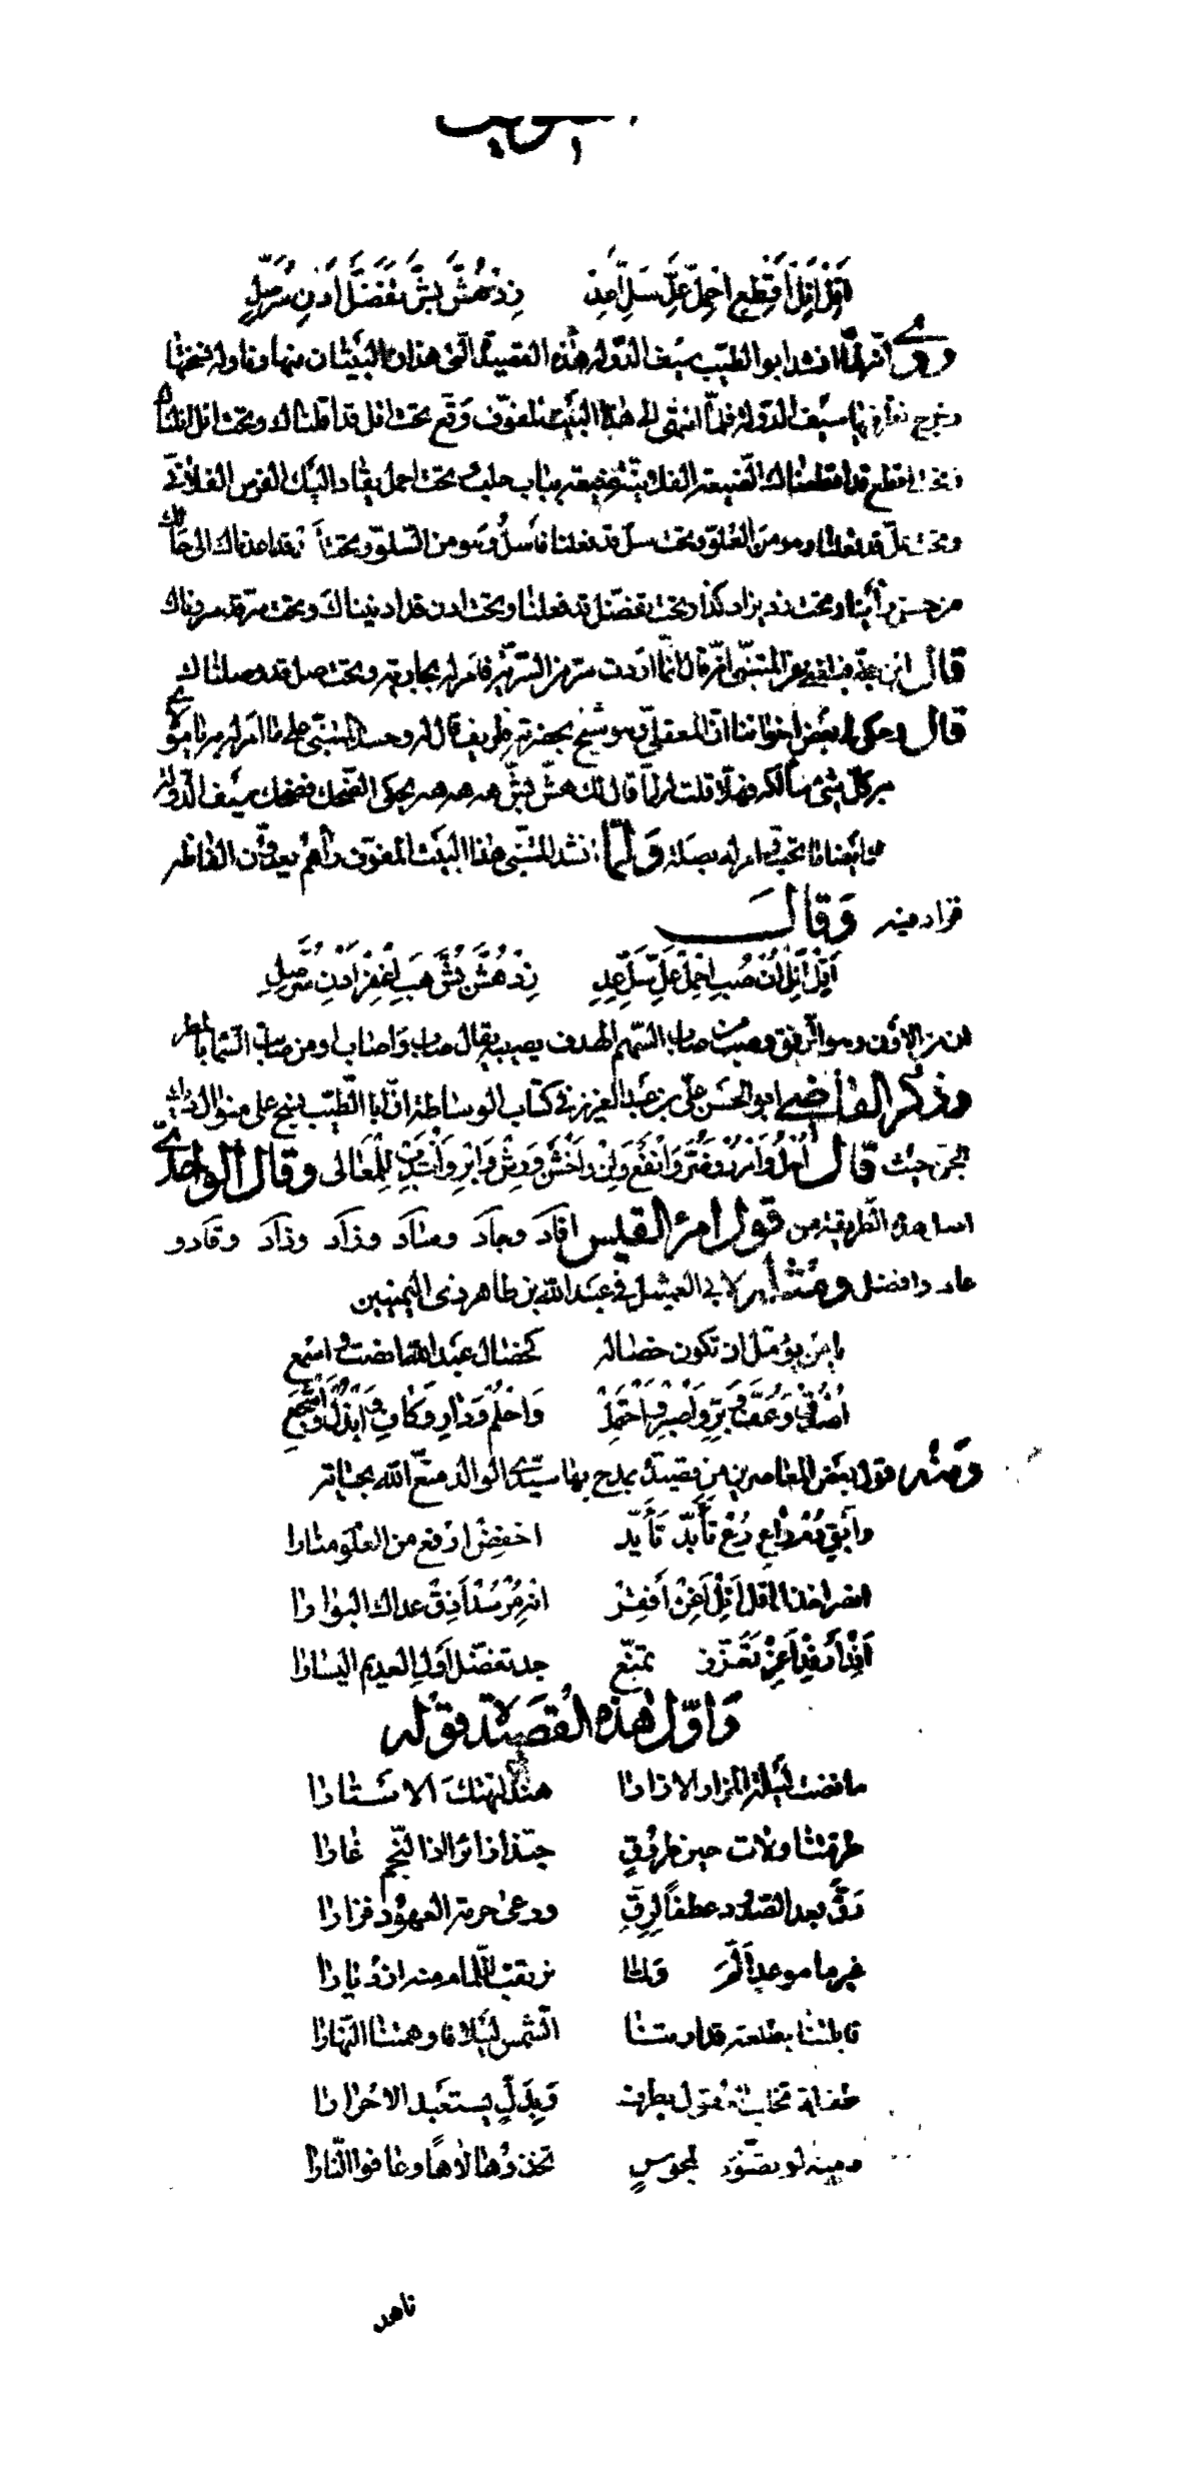 أَقِلْ أَنِلْ أَقْطِعِ احْمِلْ عَلِّ سَلِّ أَعِدْ زِدْ هَشَّ بَشَّ تَفَضَّلْ أَدْنِ سُرَّ صِلِ
روى انه لما انشد ابو الطيب سيف الدولة هذه القصيدة التى هذان البيتان منها وناوله نسختها
وخرج نظر فيها سيف الدولة فلما انتهى الى هذا البيت المفوّف وقّع تحت اقل قد اقلناك وتحت انل انلناك
وتحت اقطع قد اقطعناك الضيعة الفلانية ضيعة بباب حلب وتحت احمل يقاد اليك الفرس الفلانى
وتحت علّ قد فعلنا وهو من العلوّ وتحت سلّ قد فعلنا فاسلُ وهو من السلوّ وتحت اعد قد اعدناك الى حالك
من حسن رأينا وتحت زد يزاد كذا وتحت تفضّل قد فعلنا وتحت ادن قد ادنيناك وتحت سرّ قد سررناك
قال ابن جنى فبلغنى عن المتنبى انه قال انما اردت سرّ من السرّيّة فامر له بجارية وتحت صل قد وصلناك
قال وحكى لى بعض اخواننا ان المعقلى وهو شيخ بحضرته ظريف قال له وحسد المتنبى على ما امر له به يا مولاى
من كل شىء سألكه فهلا قلت له لما قال لك هشّ بشّ هه هه هه يحكى الضحك فضحك سيف الدولة
وقال ايضا ما تحب وامر له بصلة ولما انشد المتنبى هذا البيت المفوّف ورآهم يعدّون الفاظه
فزاد فيه وقال
أَقِلْ أَنِلْ أُنْ صُنِ احْمِلْ عَلِّ سَلِّ أَعِدْ زِدْ هَشَّ بَشَّ هَبِ اغْفِرْ أَدْنِ سُرَّ صِلِ
ان من الاَون وهو الرفق وصب من صاب السهم الهدف يصيبه يقال صاب واصاب او من صاب السماء بالمطر
وذكر القاضى ابو الحسن على بن عبد العزيز فى كتاب الوساطة ان ابا الطيب نسج على منوال ديك
الجن حيث قال اُحْلُ وَامْرُرْ وَضُرَّ وَانْفَعْ وَلِنْ وَاخْشُنْ وَرِشْ وَابْرِ وَانْتَدِبْ لِلْمَعَالى وقال الواحدى
هذه الطريقة من قول امرئ القيس افاد وجاد وساد وزاد وذاد وقاد و
عاد وافضل ومثله لابى العميثل فى عبد الله بن طاهر ذى اليمينين
يا من يؤمّل ان تكون خصاله كخصال عبد الله انصت واسمع
أُصْدُقْ وَعِفَّ وَبِرَّ وَاصْبِرْ وَاحْتَمِلْ وَاحْلُمْ وَدارِ وَكافِ وَابْذُلْ وَاشْجَعِ
ومثله قول بعض المعاصرين من قصيدة يمدح بها سيدى الوالد متع الله بحياته
وابق دم راع رع تأبّد تأيّد اخفض ارفع من العلو منارا
انصر اخذل اقل انل اغن افقر انه مر سد اذق عداك البوارا
أفد ارفد اعن تعزّز تمنّع جد تفضّل اول العديم اليسارا
واول هذه القصيدة قوله
ما قضت ليلة المزار الازارا هند لتهتك الاستارا
طرقتنا ولات حين طروق حبذا زائرا اذا النجم غارا
رقّ بعد الصدود عطفا لرق ورعى حرمة العهود فزارا
غير ما موعد ألمّ ولما نرتقب للمام منه ازديارا
قابلتنا بطلعة قد ارتنا الشمس ليلا فاوهمتنا النهارا
طفلة تخلب العقول بطرف وبدلّ يستعبد الاحرارا
دمية لو تصوّرت لمجوس تخذوها الاها وعافوا النارا
ناهد